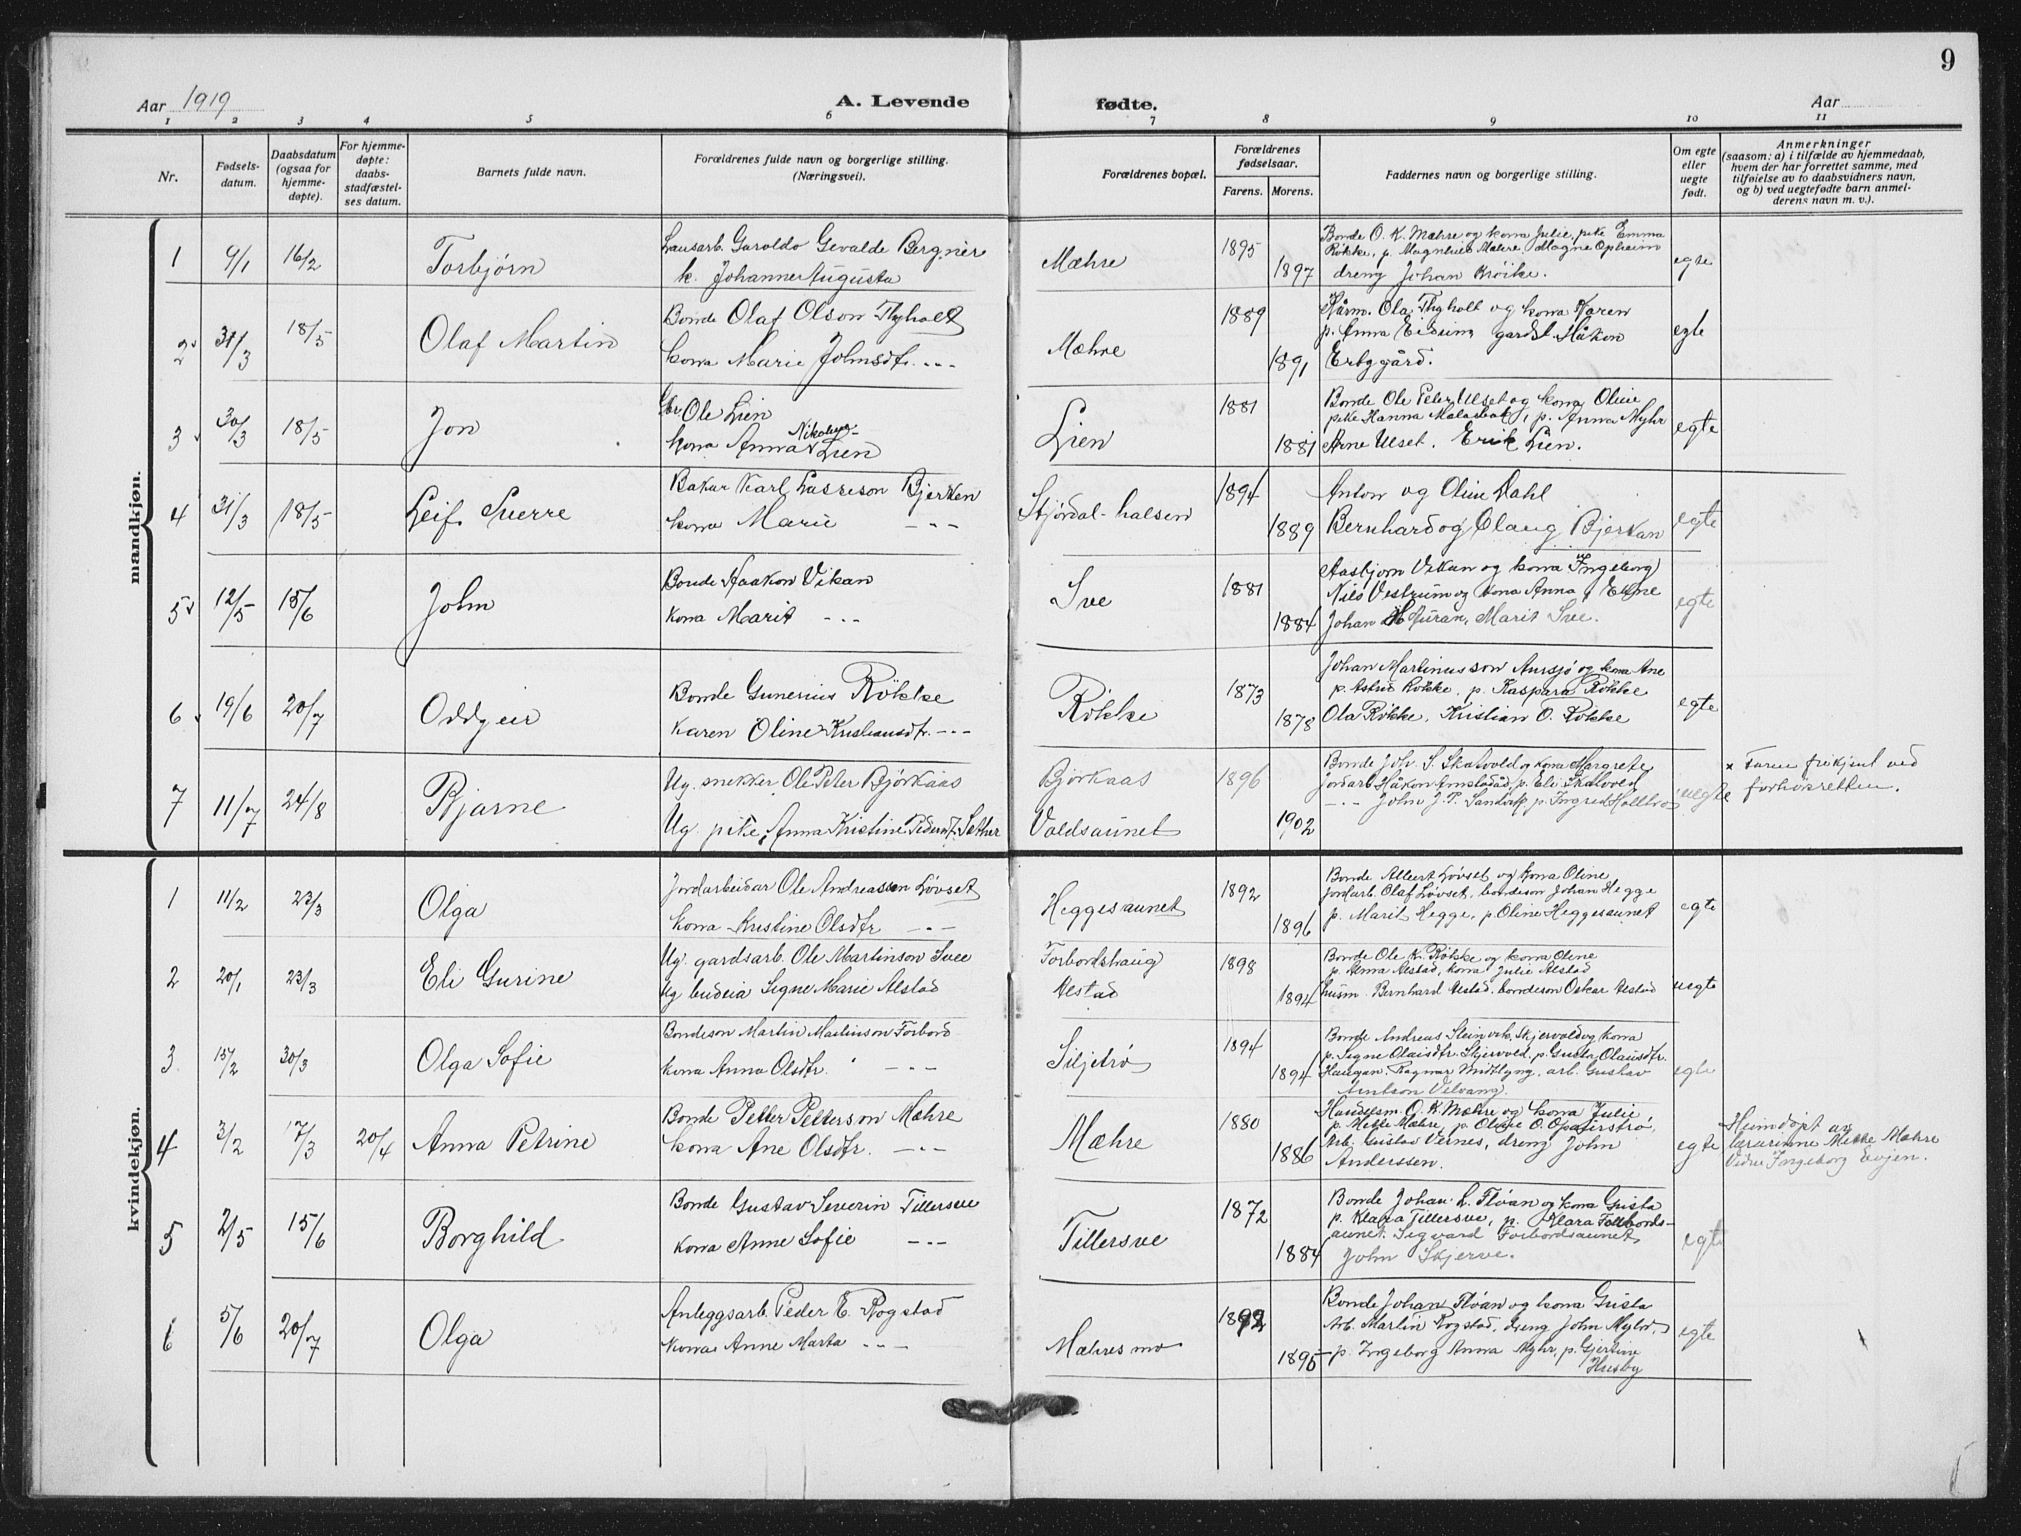 9
Aar 1919 A. Levende fødte. Aar
1 2 3 4 5 6 7 8 9 10 11
Nr.
Fødsels-
datum.
Daabsdatum
(ogsaa for
hjemme-
døpte).
For hjemme-
døpte:
daabs-
stadfæstel-
ses datum.
Barnets fulde navn.
Forældrenes fulde navn og borgerlige stilling.
(Næringsvei).
Forældrenes bopæl.
Forældrenes
fødselsaar.
Farens. Morens.
Faddernes navn og borgerlige stilling.
Om egte
eller
uegte
født.
Anmerkninger
(saasom: a) i tilfælde av hjemmedaab,
hvem der har forrettet samme, med
tilføielse av to daabsvidners navn,
og b) ved uegtefødte barn anmel-
derens navn m. v.).
mandkjøn.
1 9/1 16/2 Torbjørn
Lausarb. Garoldo Gevalde Bergner
k. Johanne Augusta
Mæhre 1895 1897
Bonde O. K. Mæhre og kona Julie, pike Emma
Røkke, p. Magnhild Mæhre, Magne Opheim
dreng Johan
egte
2 31/3 18/5 Olaf Martin
Bonde Olaf Olson Thyholt
kona Marie Johnsdtr. - - -
Mæhre 1889 1891
Kårm. Ola Thyholt og kona Karen
p. Anna gardst. Håkon
egte
3 30/3 18/5 Jon
Gbr Ole Lien
kona Anna Nikolina Lien
Lien 1881 1881
Bonde Ole Peter Ulset og kona Oline
pike Hanna p. Anna Myhr
Arne Ulset. Erik Lien.
egte
4 31/3 18/5 Leif Sverre
Bakar Karl Lasseson Bjerken
kona Marie - - -
Stjørdal-halsen 1894 1889
Anton og Oline Dahl
Bernhard og Olaug Bjerkan
egte
5 12/5 15/6 John
Bonde Haakon Vikan
Kona Marit - - -
Sve 1881 1884
Aasbjørn Vikan og kona Ingeborg
Nils Vestrum og kona Anna,
Johan Marit Sve.
egte
6 19/6 20/7 Oddgeir
Bonde Gunerius Røkke
Karen Oline Kristiansdtr. - - -
Røkke 1873 1878
Johan Martinusson Aursjø og kona Ane
p. Astrid Røkke, p. Kaspara Røkke
Ola Røkke, Kristian O. Røkke
egte
7 11/7 24/8 Bjarne
Ug. snekker Ole Peter Bjørkaas
Ug. pike, Anna Kristine Pedersdt. Sæther
Bjørkaas
Valdsaunet
1896 1902
Bonde Joh. S. Skatvold og kona Margrete
Jordarb. Håkon p. Eli Skatvold
- - - John J. P. p. Ingrid
uegte
× Faren frikjent ved
forhørsretten.
kvindekjøn.
1 11/2 23/3 Olga
Jordarbeidar Ole Andreassen Løvset
kona Kristine Olsdtr - - -
Heggesaunet 1892 1896
Bonde Albert Løvset og kona Oline
Jordarb. Olaf Løvset, bondeson Johan Hegge
p. Marit Hegge, p. Oline Heggesaunet
egte
2 20/1 23/3 Eli Gurine
Ug. gardsarb. Ole Martinson Svee
Ug budeia Signe Marie Alstad
Forbordshaug
Alstad
1898 1894
Bonde Ole K. Røkke og kona Oline
p. Anna Alstad, kona Julie Alstad
husm. Bernhard Alstad, bondeson Oskar Alstad
uegte
3 15/2 30/3 Olga Sofie
Bondeson Martin Martinson Forbord
kona Anna Olsdtr. - - -
Siljetrø 1894 1894
Bonde Andreas Steinvik, Skjervold og kona
p. Signe Olaisdtr. Skjervold, p. Gusta Olausdtr.
Haugan. Ragnar Midtlyng, arb. Gustav
Arntson Velvang.
egte
4 3/2 17/3 20/4 Anna Petrine
Bonde Petter Petterson Mæhre
kona Ane Olsdtr. - - -
Mæhre 1880 1886
Handelsm. O. K. Mæhre og kona Julie
p. Mette Mæhre, p. Olise O.
Arb. Gustav Vernes, dreng John
Anderssen.
egte
Heimdøpt av
lærarinne Mette Mæhre
Vidne Ingeborg Evjen.
5 2/5 15/6 Borghild
Bonde Gustav Severin Tillersve
Kona Anne Sofie - - -
Tillersve 1872 1884
Bonde Johan L. Fløan og kona Gusta
p. Klara Tillersve, p. Klara Forbords-
aunet. Sigvard Forbordsaunet,
John Skjerve.
egte
6 5/6 20/7 Olga
Anleggsarb. Peder E. Rogstad
Kona Anne Marta - - -
Mæhresmo 1892 1895
Bonde Johan Fløan og kona Gusta
Arb. Martin Rogstad, dreng John Myhr,
p. Ingeborg Anna Myhr, p. Gjertine
Husby
egte